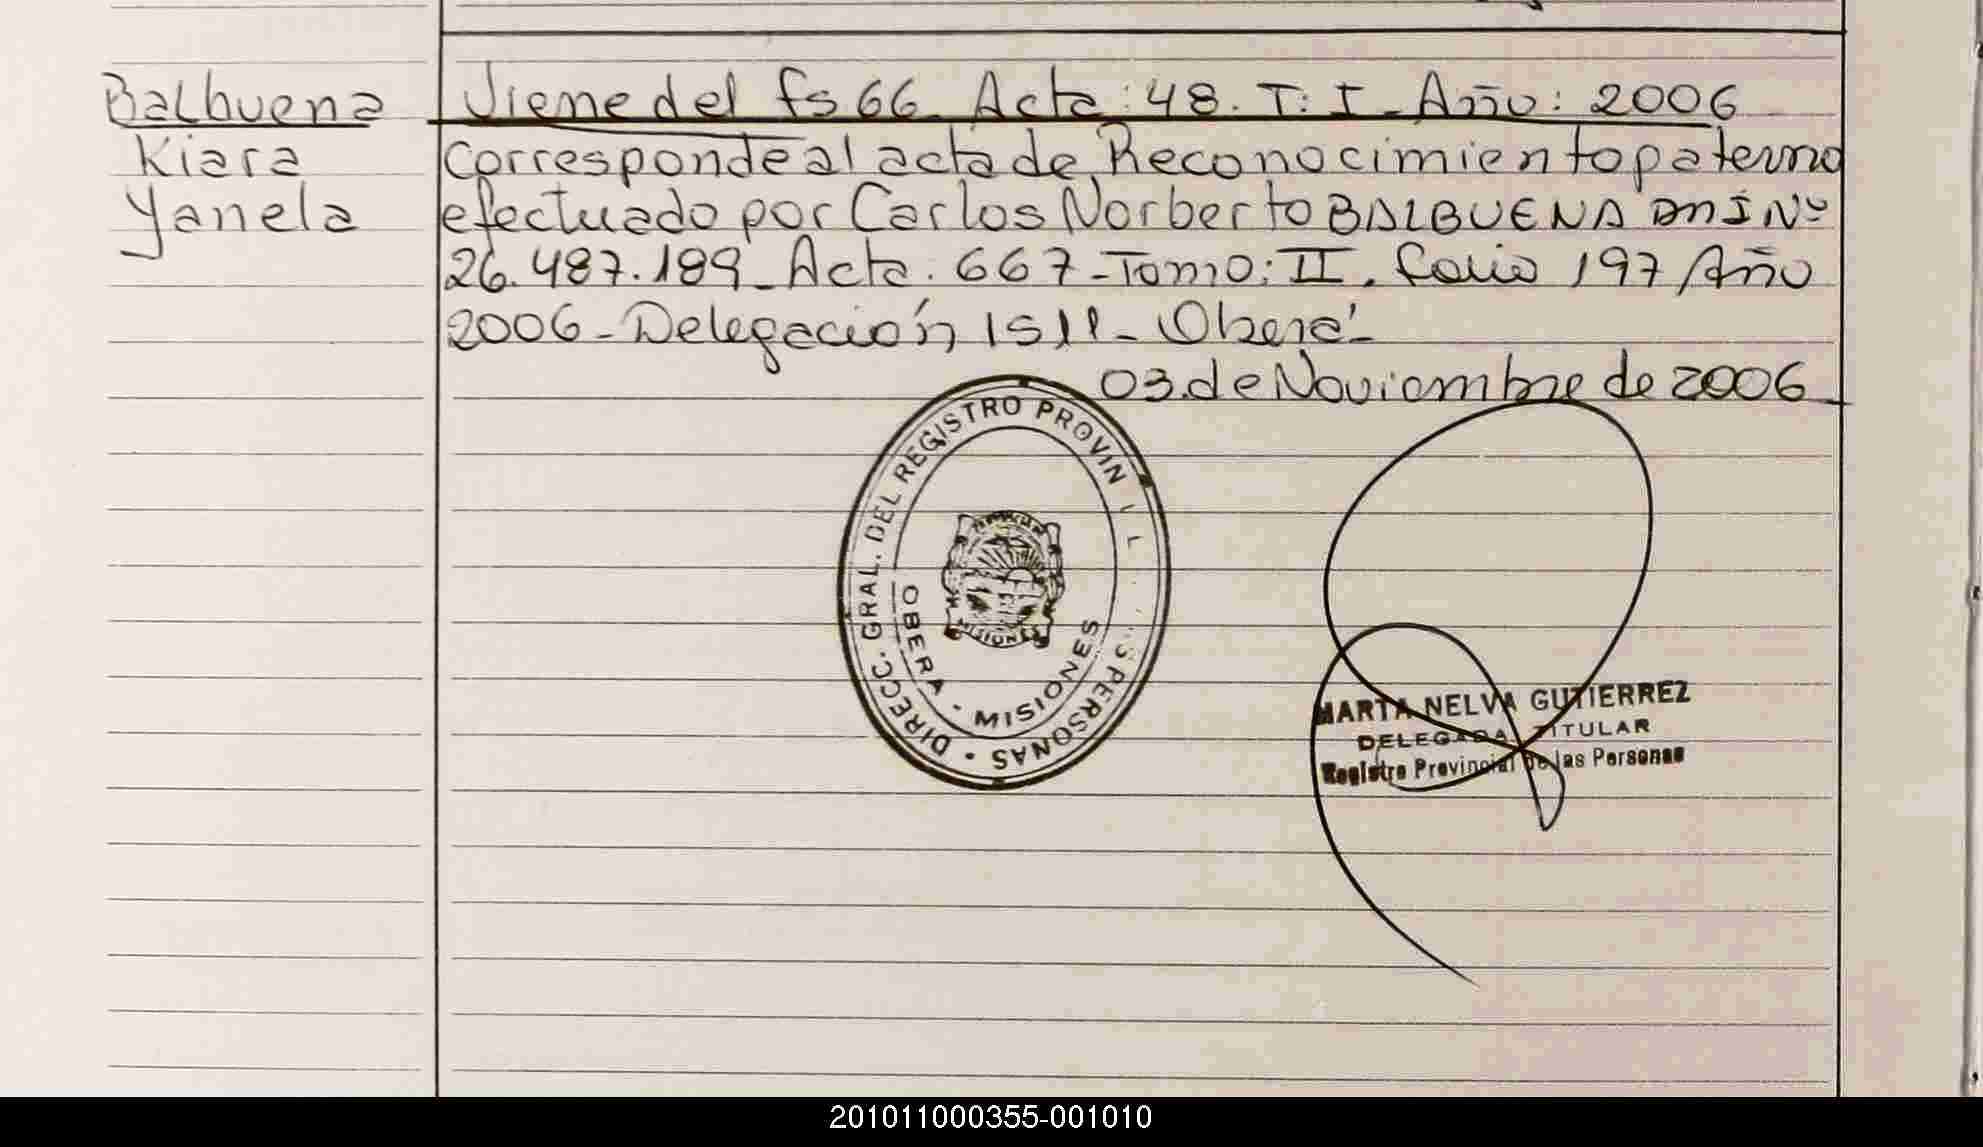 Balbuena
Kiara
Yanela
Viene del fs 66 Acta: 48. T: I - Año: 2006
Corresponde al acta de Reconocimiento paterno
efectuado por Carlos Norberto BALBUENA DNI Nº
26.487.189 - Acta. 667 - Tomo: II. folio 197 Año
2006 - Delegación 1511 - Oberá -
03. de Noviembre de 2006
DIRECC. GRAL. DEL REGISTRO PROVIN L PERSONAS
OBERA - MISIONES
MISIONES
MARTA NELVA GUTIERREZ
DELEGADA TITULAR
Registro Provincial de las Personas
201011000355-001010